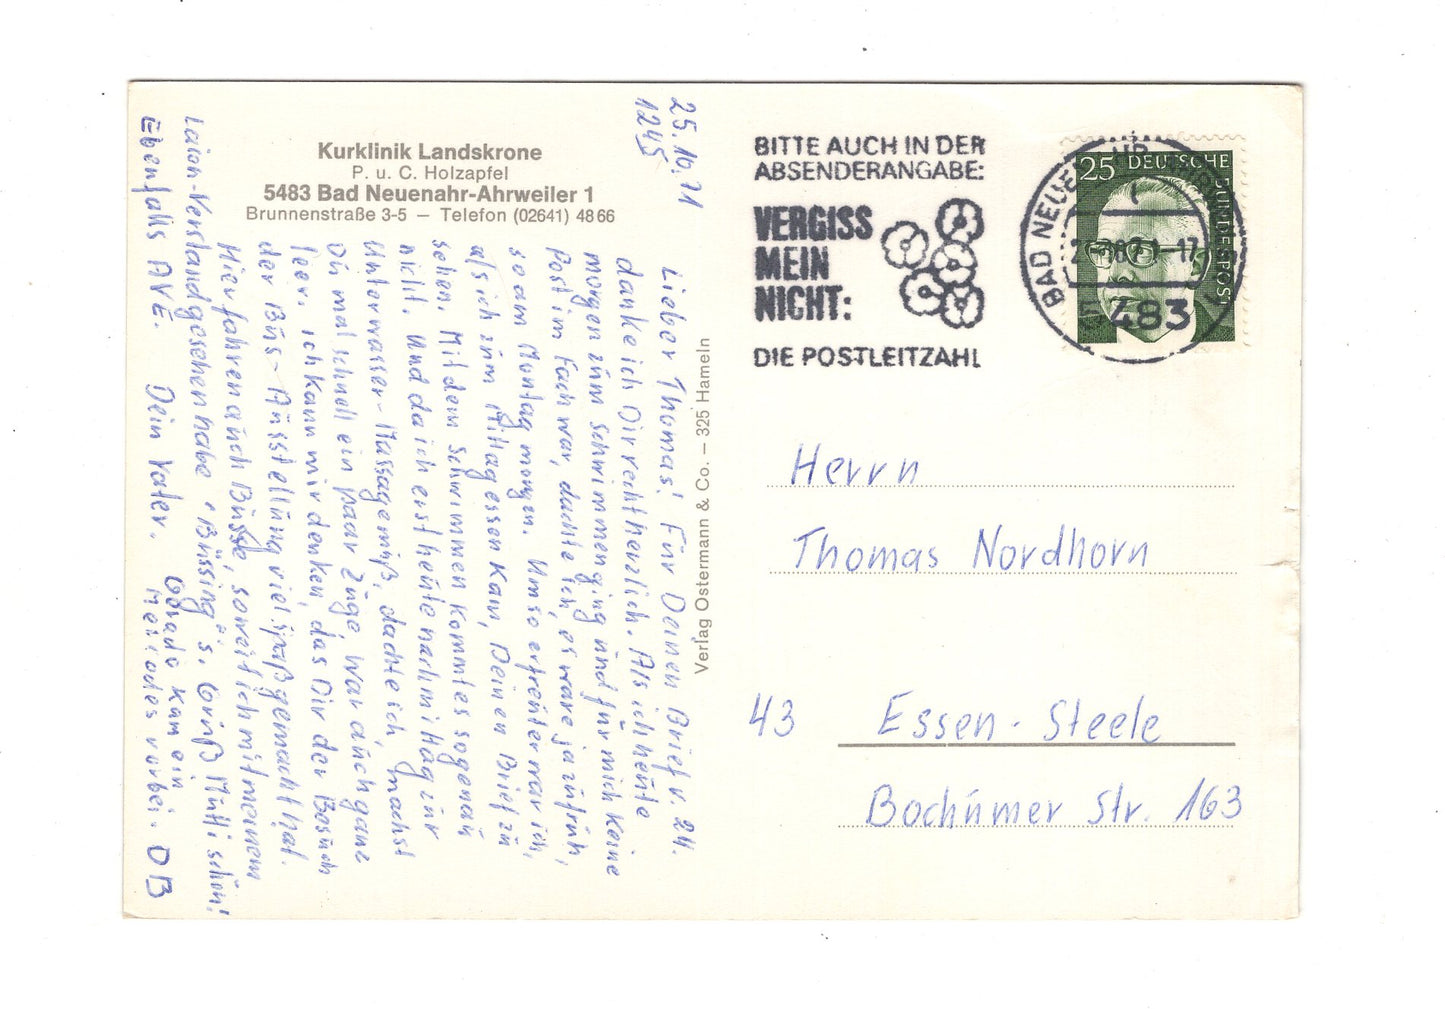 Kurklinik Landskrone
P. u. C. Holzapfel
5483 Bad Neuenahr-Ahrweiler 1
Brunnenstraße 3-5 — Telefon (02641) 48 66
25.10.71
1245
Lieber Thomas! Für Deinen Brief v. 24.
danke ich Dir recht herzlich. Als ich heute
morgen zum schwimmen ging und für mich keine
Post im Fach war, dachte ich, es wäre ja zu früh,
so am Montag morgen. Umso erfreuter war ich,
als ich zum Mittagessen kam, Deinen Brief zu
sehen. Mit dem schwimmen kommt es so genau
nicht. Und da ich erst heute nachmittag zur
Unterwasser-Massage muß, dachte ich, machst
Du mal schnell ein paar Züge, war auch ganz
leer. ich kann mir denken, das Dir der Besuch
der Bus-Ausstellung viel Spaß gemacht hat.
Hier fahren auch Busse, soweit ich mit meinem
Laien-Verstand gesehen habe "Büssing" s. Grüß Mutti schön!
Ebenfalls AVE. Dein Vater.
Grade kam ein
Mercedes vorbei. DB
Verlag Ostermann & Co. — 325 Hameln
BITTE AUCH IN DER
ABSENDERANGABE:
VERGISS
MEIN
NICHT:
DIE POSTLEITZAHL
25 DEUTSCHE
BUNDESPOST
BAD NEUE
483
Herrn
Thomas Nordhorn
43 Essen-Steele
Bochumer Str. 163